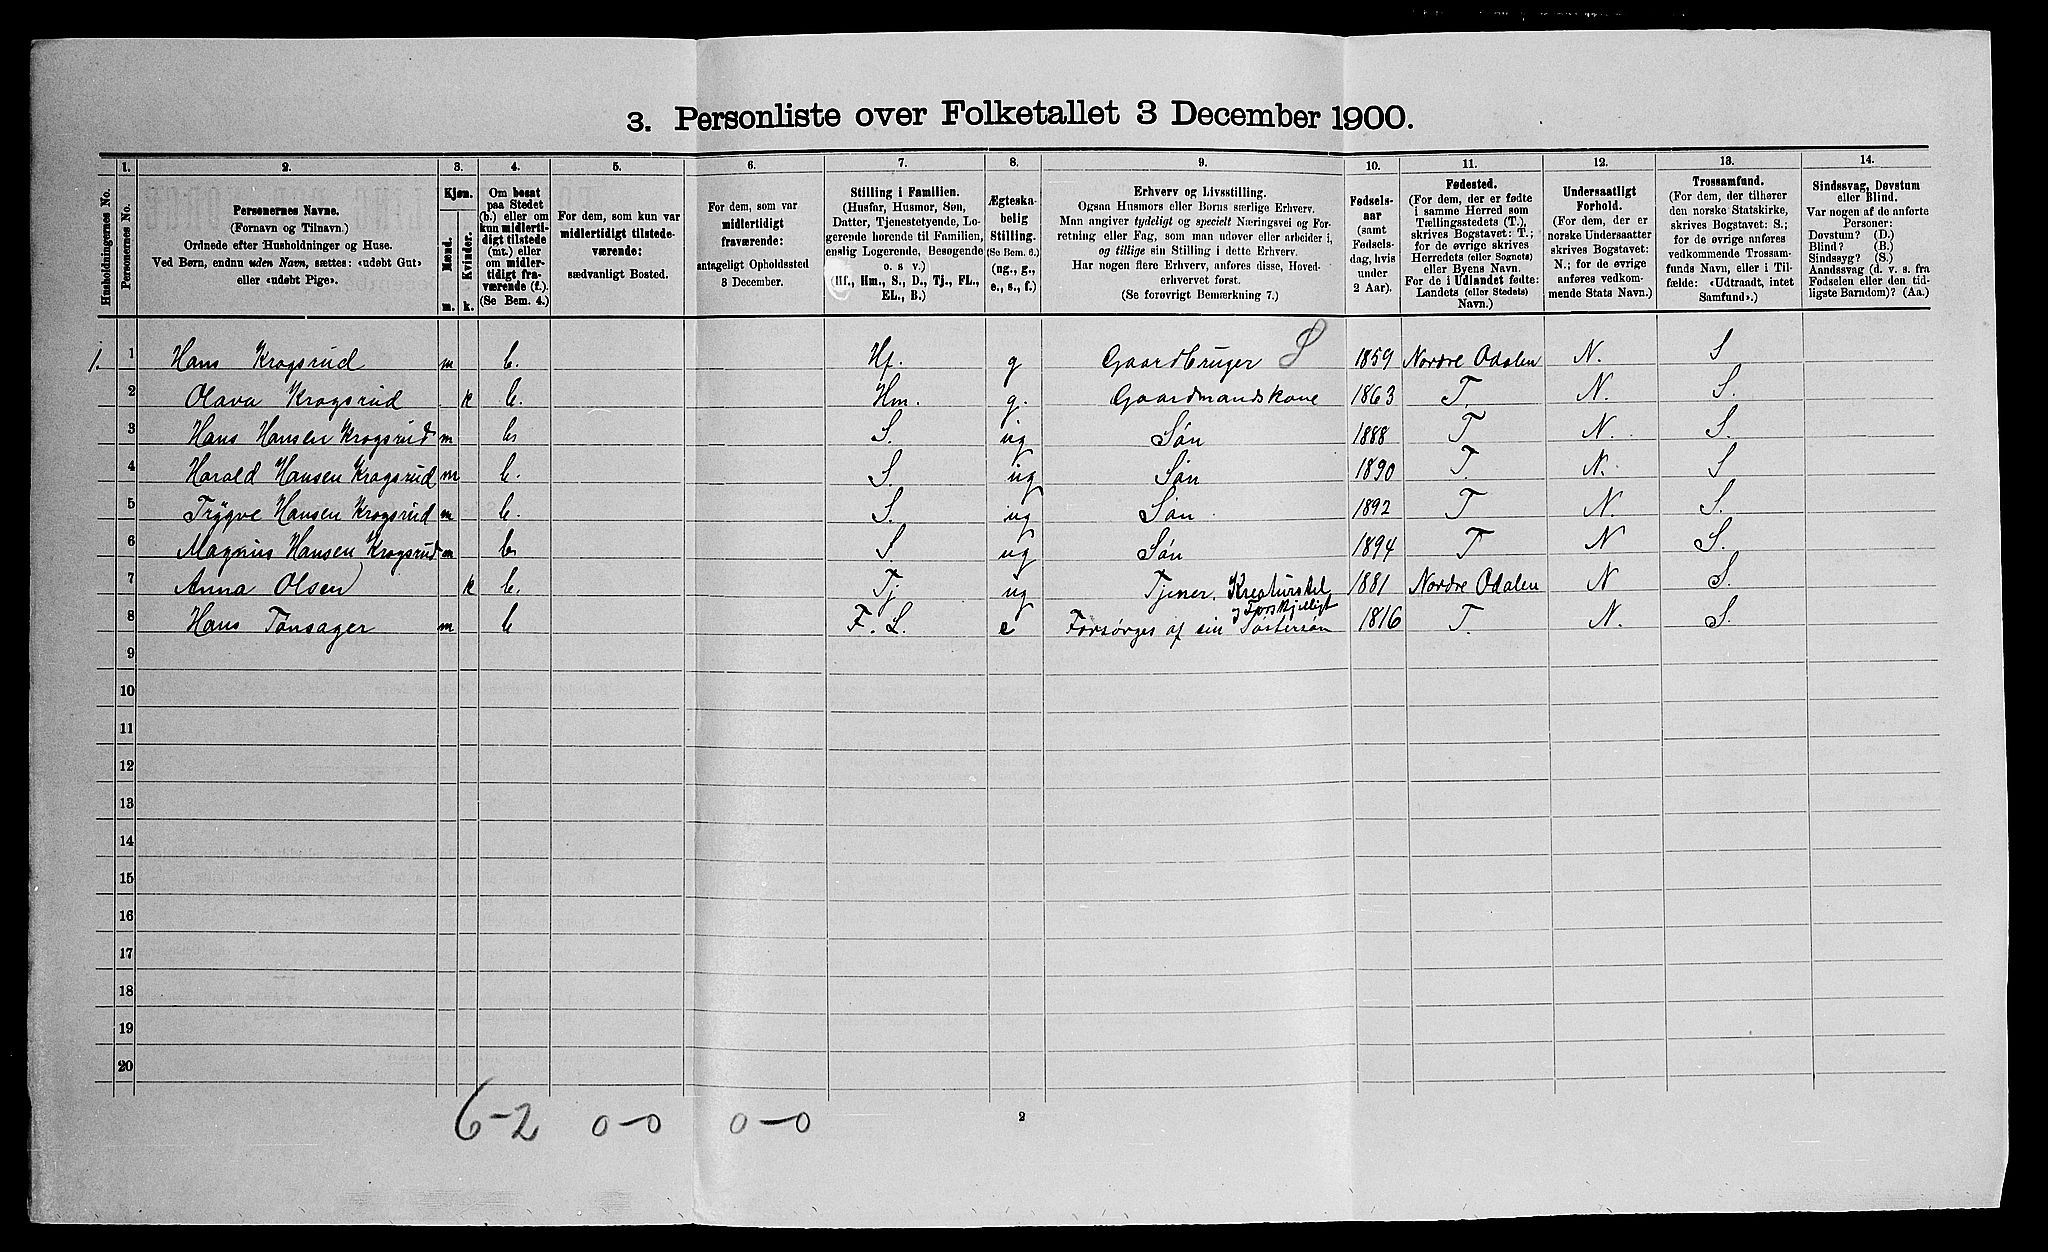 3. Personliste over Folketallet 3 December 1900.
Husholdningernes No.
1.
Personernes No.
2.
Personernes Navne.
(Fornavn og Tilnavn.)
Ordnede efter Husholdninger og Huse.
Ved Børn, endnu uden Navn, sættes: «udøbt Gut»
eller «udøbt Pige».
3.
Kjøn.
Mænd.
Kvinder.
m. k.
4.
Om bosat
paa Stedet
(b.) eller om
kun midlerti-
digt tilstede
(mt.) eller
om midler-
tidigt fra-
værende (f.).
(Se Bem. 4.)
5.
For dem, som kun var
midlertidigt tilstede-
værende:
sædvanligt Bosted.
6.
For dem, som var
midlertidigt
fraværende:
antageligt Opholdssted
3 December.
7.
Stilling i Familien.
(Husfar, Husmor, Søn,
Datter, Tjenestetyende, Lo-
gerende hørende til Familien,
enslig Logerende, Besøgende
o. s v.)
(Hf., Hm., S., D., Tj., FL.,
EL., B.)
8.
Ægteska-
belig
Stilling.
(Se Bem. 6.)
(ug., g.,
e., s., f.)
9.
Erhverv og Livsstilling.
Ogsaa Husmors eller Børns særlige Erhverv.
Man angiver tydeligt og specielt Næringsvei og For-
retning eller Fag, som man udøver eller arbeider i,
og tillige sin Stilling i dette Erhverv.
Har nogen flere Erhverv, anføres disse, Hoved-
erhvervet først.
(Se forøvrigt Bemærkning 7.)
10.
Fødsels-
aar
(samt
Fødsels-
dag, hvis
under
2 Aar).
11.
Fødested.
(For dem, der er fødte
i samme Herred som
Tællingsstedets (T.),
skrives Bogstavet: T.;
for de øvrige skrives
Herredets (eller Sognets)
eller Byens Navn.
For de i Udlandet fødte:
Landets (eller Stedets)
Navn.)
12.
Undersaatligt
Forhold.
(For dem, der er
norske Undersaatter
skrives Bogstavet:
N.; for de øvrige
anføres vedkom-
mende Stats Navn.)
13.
Trossamfund.
(For dem, der tilhører
den norske Statskirke,
skrives Bogstavet: S.;
for de øvrige anføres
vedkommende Trossam-
funds Navn, eller i Til-
fælde: «Udtraadt, intet
Samfund».)
14.
Sindssvag, Døvstum
eller Blind.
Var nogen af de anførte
Personer:
Døvstum? (D.)
Blind? (B.)
Sindssyg? (S.)
Aandssvag (d. v. s. fra
Fødselen eller den tid-
ligste Barndom)? (Aa.)
1. 1 Hans Krogsrud m b. Hf. g Gaardbruger S 1859 Nordre Odalen N. S
2 Olava Krogsrud k b. Hm. g. Gaardmandskone 1863 T. N. S.
3 Hans Hansen Krogsrud m b. S. ug Søn 1888 T N. S.
4 Harald Hansen Krogsrud m b. S. ug Søn 1890 T. N. S
5 Trygve Hansen Krogsrud m b. S. ug Søn 1892 T N. S.
6 Magnus Hansen Krogsrud m b. S ug Søn 1894 T N S.
7 Anna Olsen k b. Tj ug Tjener. Kreaturstel 1881 Nordre Odalen N S.
og Forskjelligt
8 Hans Tønsager m b F. L. e Forsørges af sin Søstersøn 1816 T. N. S.
9
10
11
12
13
14
15
16
17
18
19
20
6-2 0-0 0-0
2